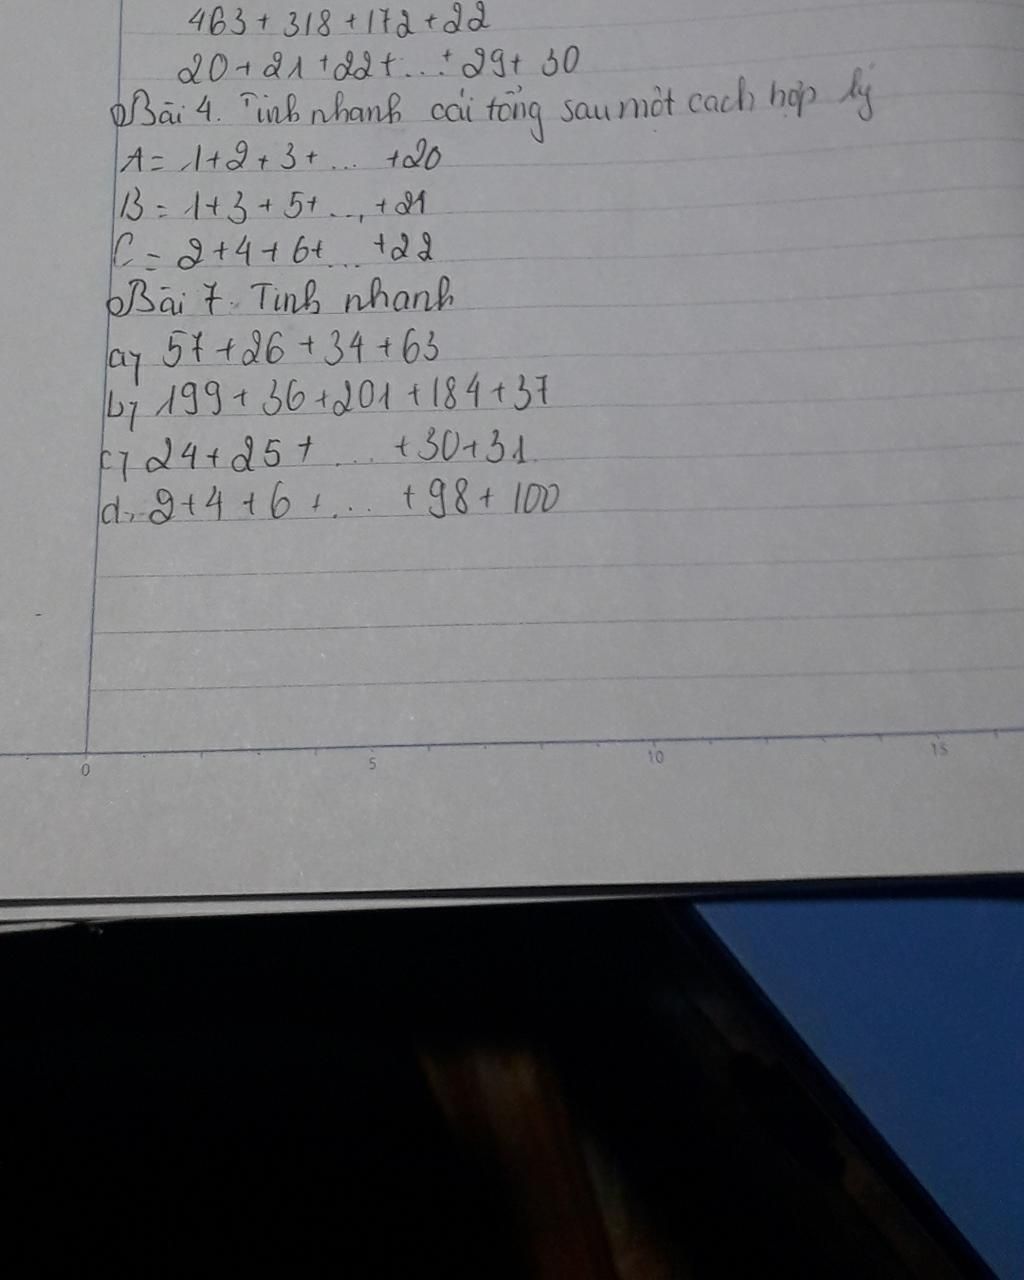 463 + 318 + 172 + 22
20 + 21 + 22 + ... + 29 + 30
Bài 4. Tinh nhanh cái tổng sau một cach hợp lý
A = 1 + 2 + 3 + ... + 20
B = 1 + 3 + 5 + ... + 21
C = 2 + 4 + 6 + ... + 22
Bài 7. Tinh nhanh
a, 57 + 26 + 34 + 63
b, 199 + 36 + 201 + 184 + 37
c, 24 + 25 + ... + 30 + 31
d, 2 + 4 + 6 + ... + 98 + 100
0 5 10 15